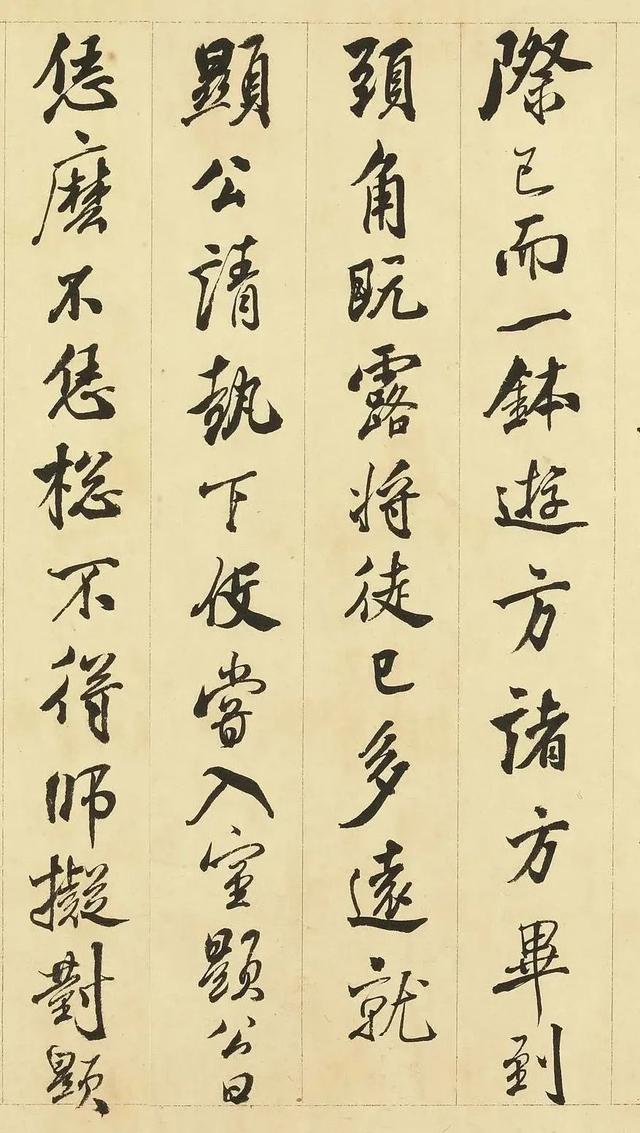 際已而一鉢遊方諸方畢到
頭角既露將徒已多遠就
顯公請執下伎嘗入室顯公曰
恁麼不恁總不得師擬對顯